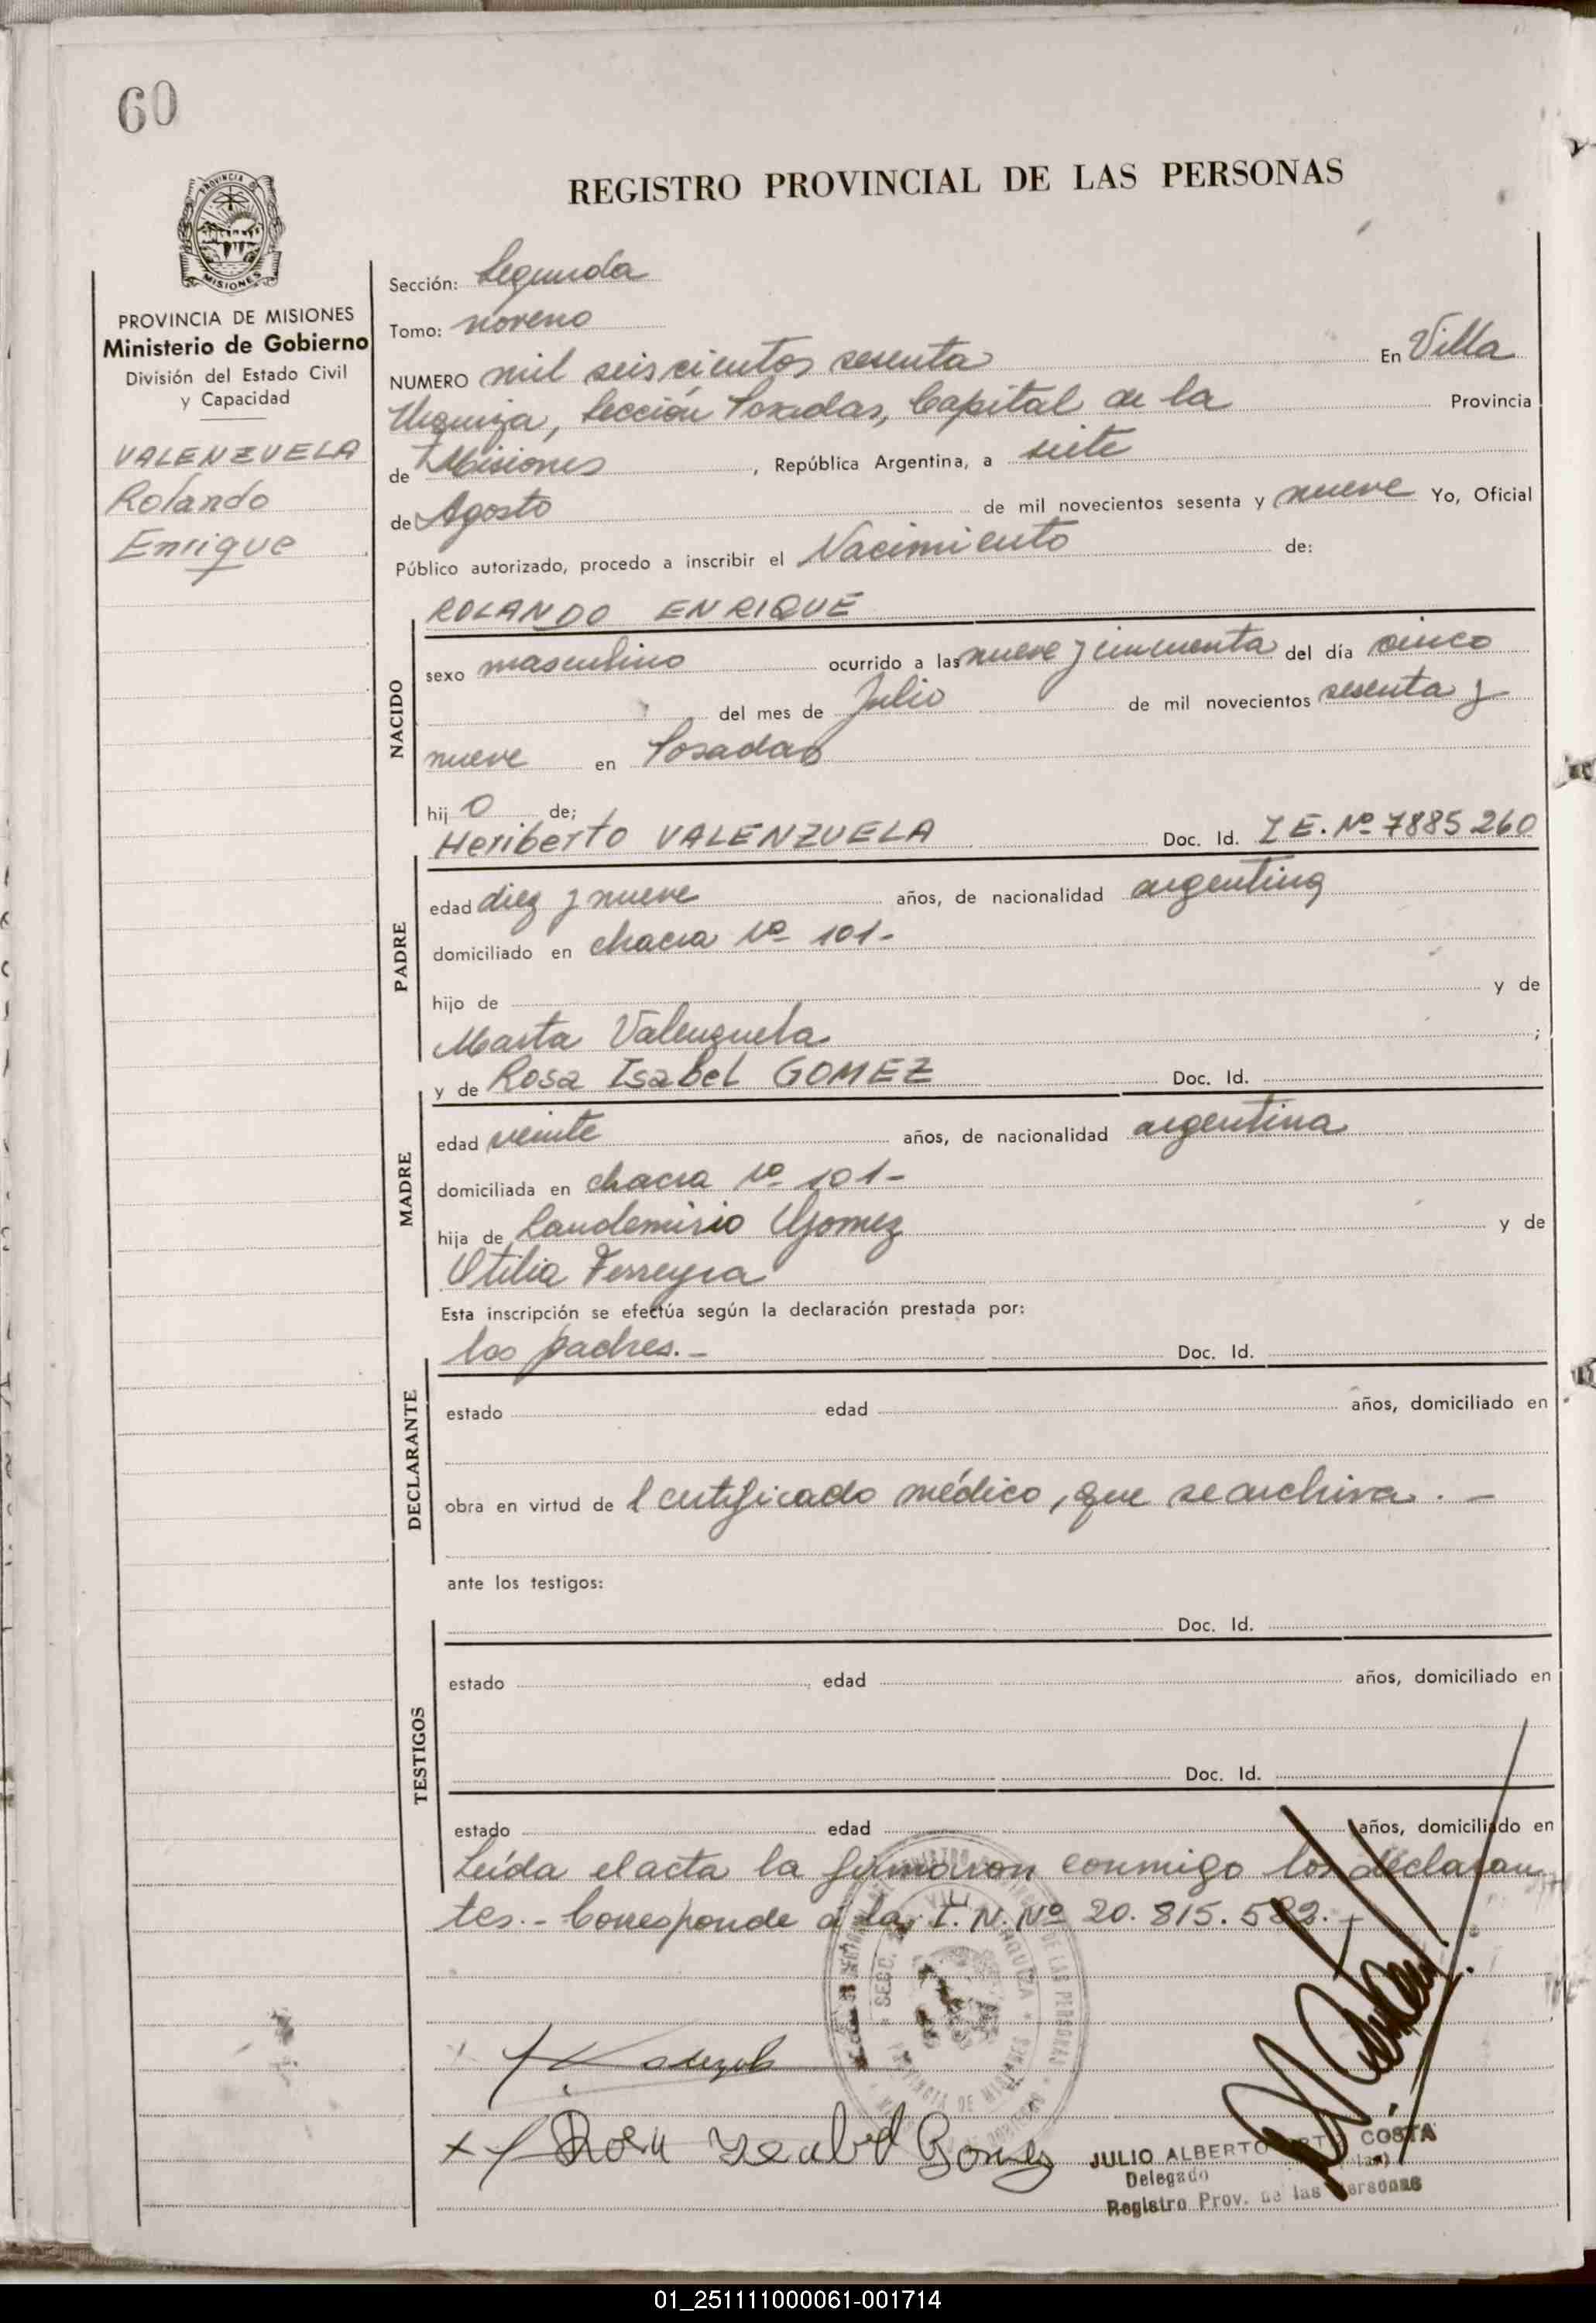 60
REGISTRO PROVINCIAL DE LAS PERSONAS
PROVINCIA DE MISIONES
PROVINCIA DE MISIONES
Ministerio de Gobierno
División del Estado Civil
y Capacidad
VALENZUELA
Rolando
Enrique
Sección: Segunda
Tomo: noveno
NUMERO mil seiscientos sesenta En Villa
Urquiza, Sección Posadas, Capital de la Provincia
de Misiones , República Argentina, a siete
de Agosto de mil novecientos sesenta y nueve Yo, Oficial
Público autorizado, procedo a inscribir el Nacimiento de:
ROLANDO ENRIQUE
NACIDO
sexo masculino ocurrido a las nueve y cincuenta del día cinco
del mes de Julio de mil novecientos sesenta y
nueve en Posadas
hij o de;
Heriberto VALENZUELA Doc. Id. I E. Nº 7885260
PADRE
edad diez y nueve años, de nacionalidad argentina
domiciliado en chacra Nº 101-
hijo de y de
Marta Valenzuela ;
y de Rosa Isabel GOMEZ Doc. Id.
MADRE
edad veinte años, de nacionalidad argentina
domiciliada en chacra Nº 101-
hija de Laudemirio Gomez y de
Otilia Ferreyra
Esta inscripción se efectúa según la declaración prestada por:
los padres.- Doc. Id.
DECLARANTE
estado edad años, domiciliado en
obra en virtud de l certificado médico, que se archiva. -
ante los testigos:
Doc. Id.
TESTIGOS
estado edad años, domiciliado en
Doc. Id.
estado edad años, domiciliado en
Leída el acta la firmaron conmigo los declaran
tes.- Corresponde a la I. N. Nº 20.815.582.-
SECC. VILLA URQUIZA
PROVINCIA DE MISIONES
DE LAS PERSONAS
Rosa Isabel Gomez
JULIO ALBERTO COSTA
Delegado
Registro Prov. de las Personas
01_251111000061-001714